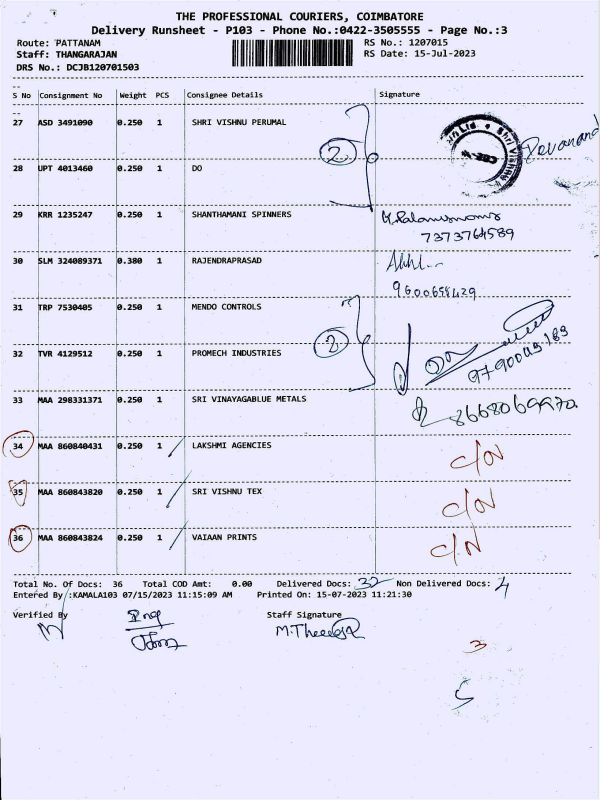 THE PROFESSIONAL COURIERS, COIMBATORE
Delivery Runsheet - P103 - Phone No.:0422-3505555 - Page No.:3
Route: PATTANAM
RS No.: 1207015
Staff: THANGARAJAN
RS Date: 15-Jul-2023
DRS No.: DCJB120701503
S No Consignment No Weight PCS Consignee Details Signature
27 ASD 3491090 0.250 1 SHRI VISHNU PERUMAL
2
Devanand
28 UPT 4013460 0.250 1 DO
29 KRR 1235247 0.250 1 SHANTHAMANI SPINNERS
7373764589
30 SLM 324089371 0.380 1 RAJENDRAPRASAD
31 TRP 7530405 0.250 1 MENDO CONTROLS
2
32 TVR 4129512 0.250 1 PROMECH INDUSTRIES
33 MAA 298331371 0.250 1 SRI VINAYAGABLUE METALS
34 MAA 860840431 0.250 1 LAKSHMI AGENCIES C/N
35 MAA 860843820 0.250 1 SRI VISHNU TEX C/N
36 MAA 860843824 0.250 1 VAIAAN PRINTS C/N
Total No. Of Docs: 36 Total COD Amt: 0.00 Delivered Docs: 32 Non Delivered Docs: 4
Entered By :KAMALA103 07/15/2023 11:15:09 AM Printed On: 15-07-2023 11:21:30
Verified By Staff Signature
3